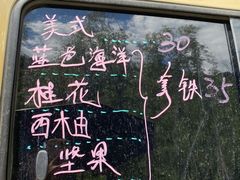 美式 30
蓝色海洋
桂花
西柚
坚果
拿铁 35